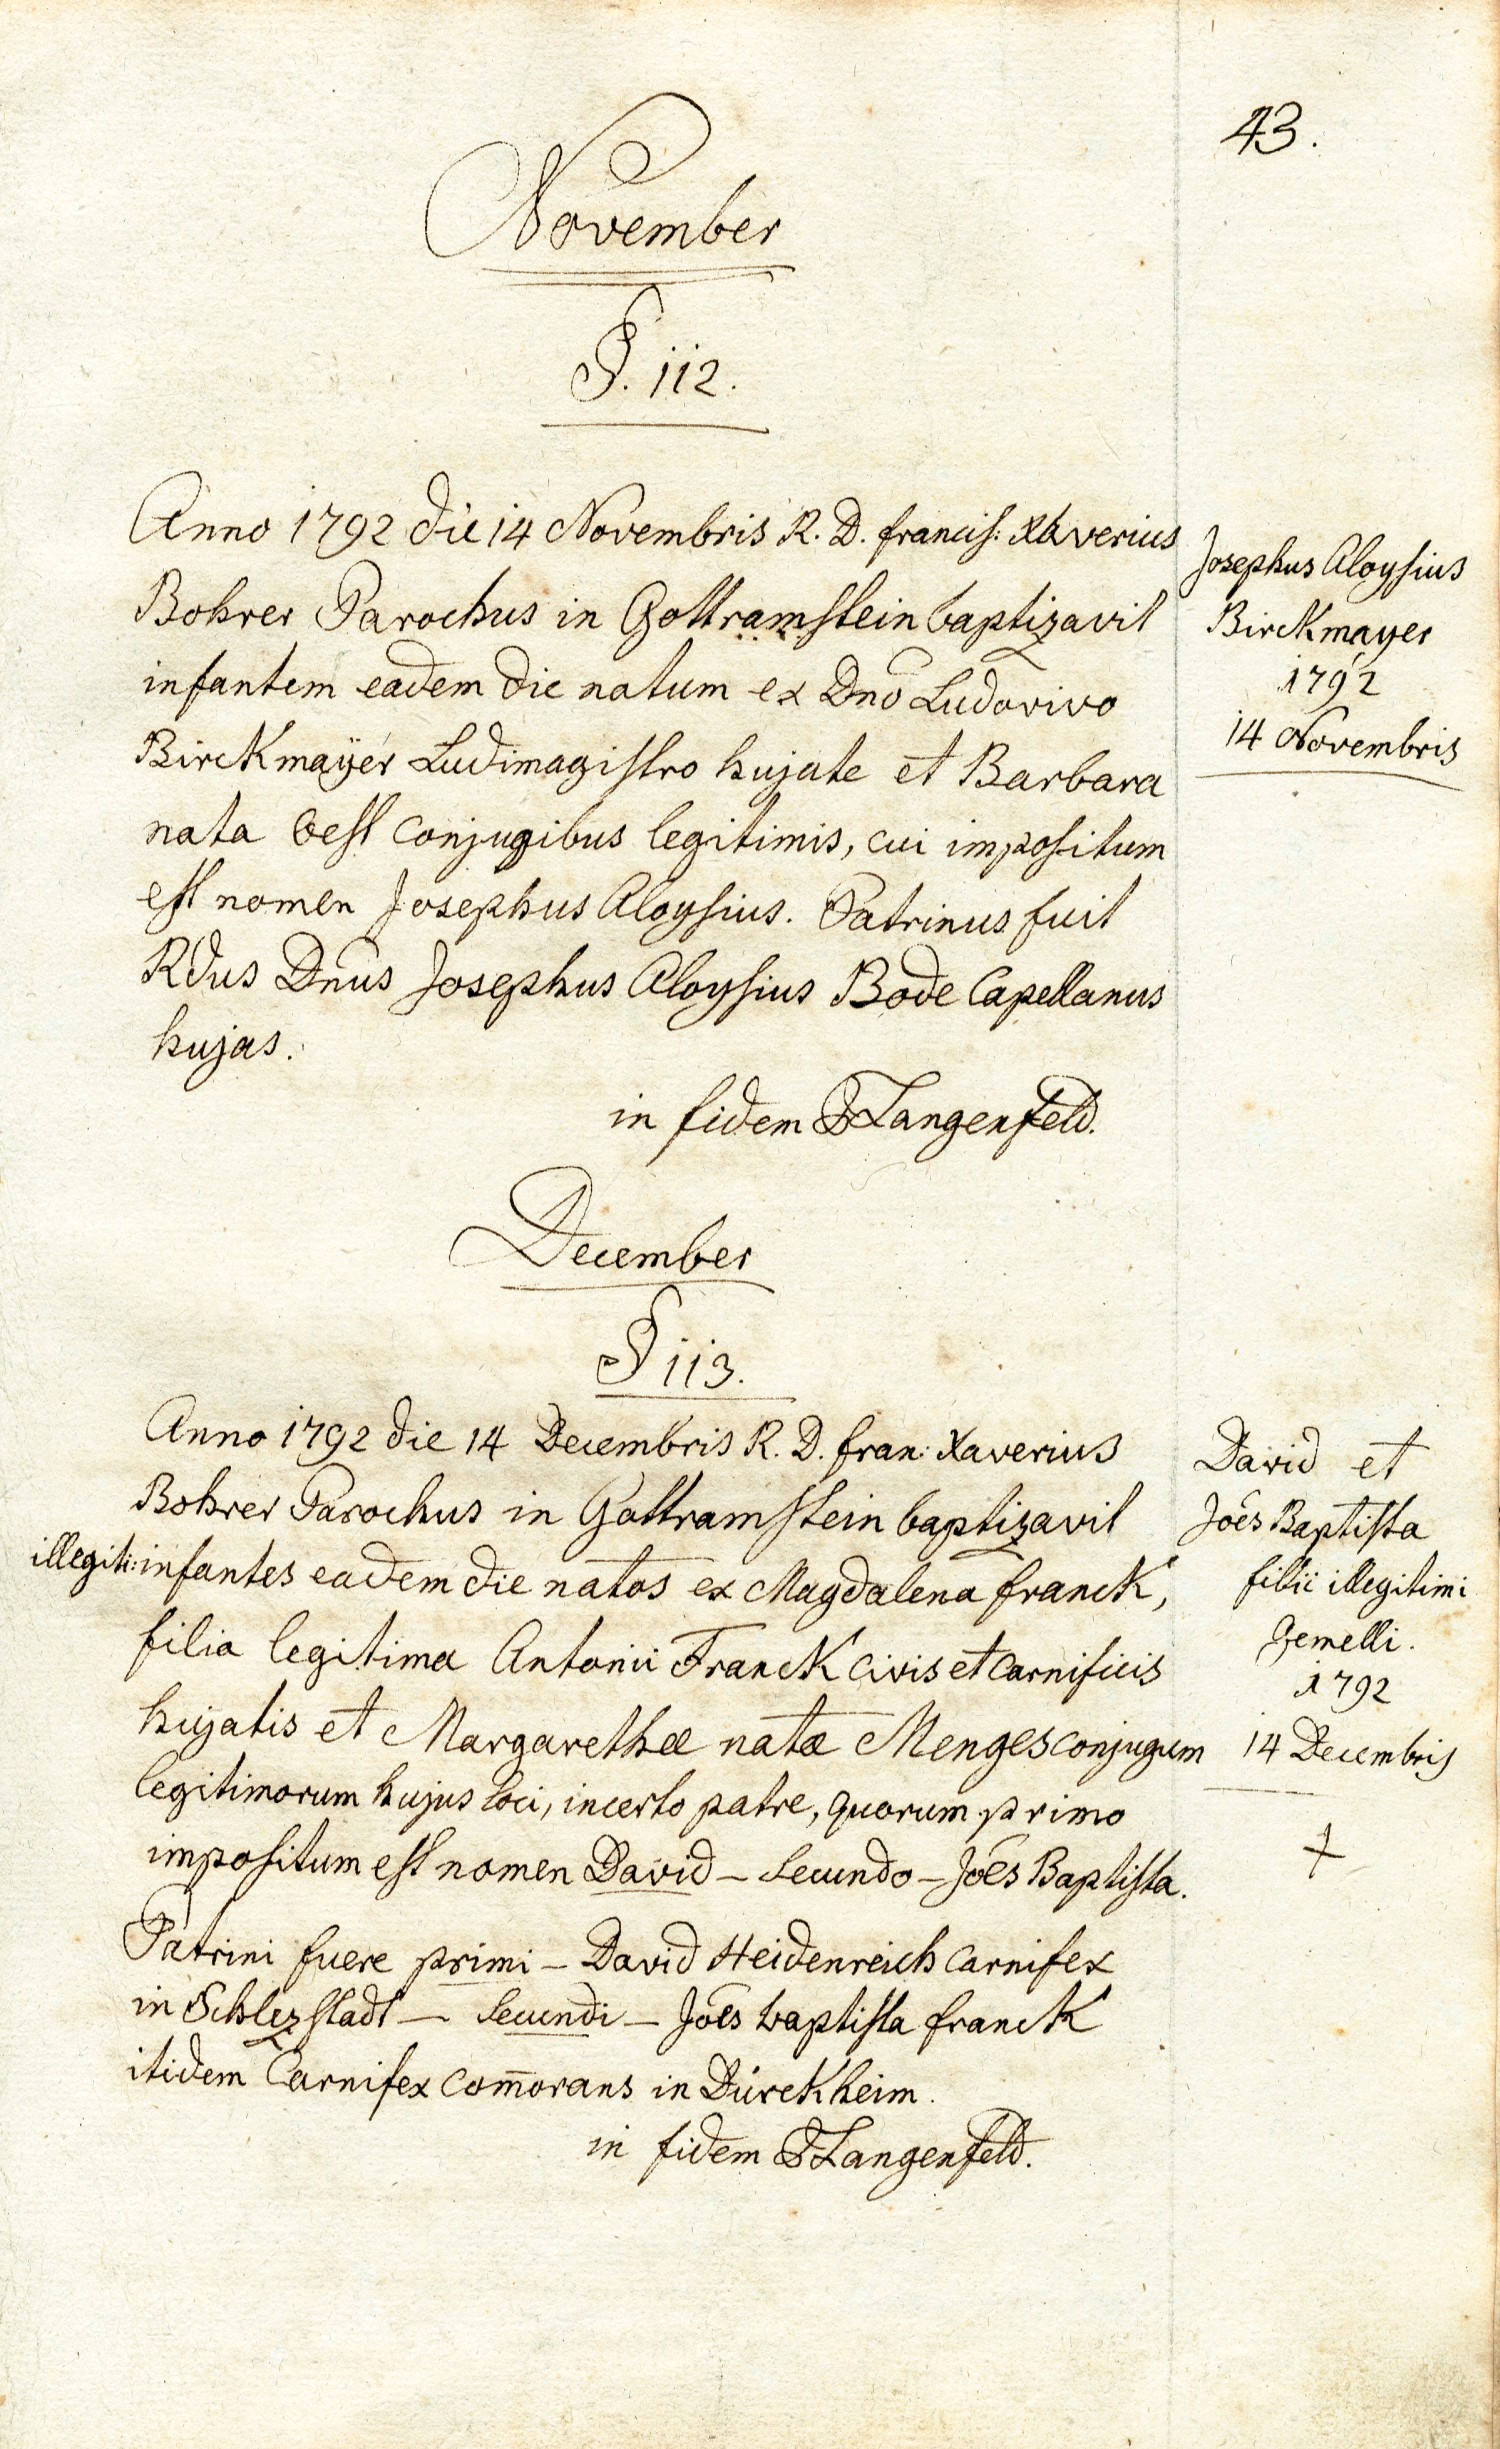 43.
November
§. 112.
Anno 1792 die 14 Novembris R. D. francis: Xaverius
Bohrer Parochus in Gottramstein baptizavit
infantem eadem die natum ex Dno Ludovivo
Birckmaÿer Ludimagistro hujate et Barbara
nata Oest conjugibus legitimis, cui impositum
est nomen Josephus Aloysius. Patrinus fuit
Rdus Dnus Josephus Aloysius Bode Capellanus
hujas.
in fidem Langenfeld.
Josephus Aloysius
Birckmayer
1792
14 Novembris
December
§ 113.
Anno 1792 die 14 Decembris R. D. fran: Xaverius
Bohrer Parochus in Gottramstein baptizavit
illegiti: infantes eadem die natos ex Magdalena franck,
filia legitima Antonii Franck civis et carnificis
hujatis et Margarethæ natæ Menges conjugum
legitimorum hujus loci, incerto patre, quorum primo
impositum est nomen David – secundo – Jões Baptista.
Patrini fuere primi – David Heidenreich carnifex
in Schlezstadt – secundi – Jões baptista franck
itidem Carnifex com̄orans in Dürckheim.
in fidem Langenfeld.
David et
Jões Baptista
filii illegitimi
gemelli.
1792
14 Decembris
+